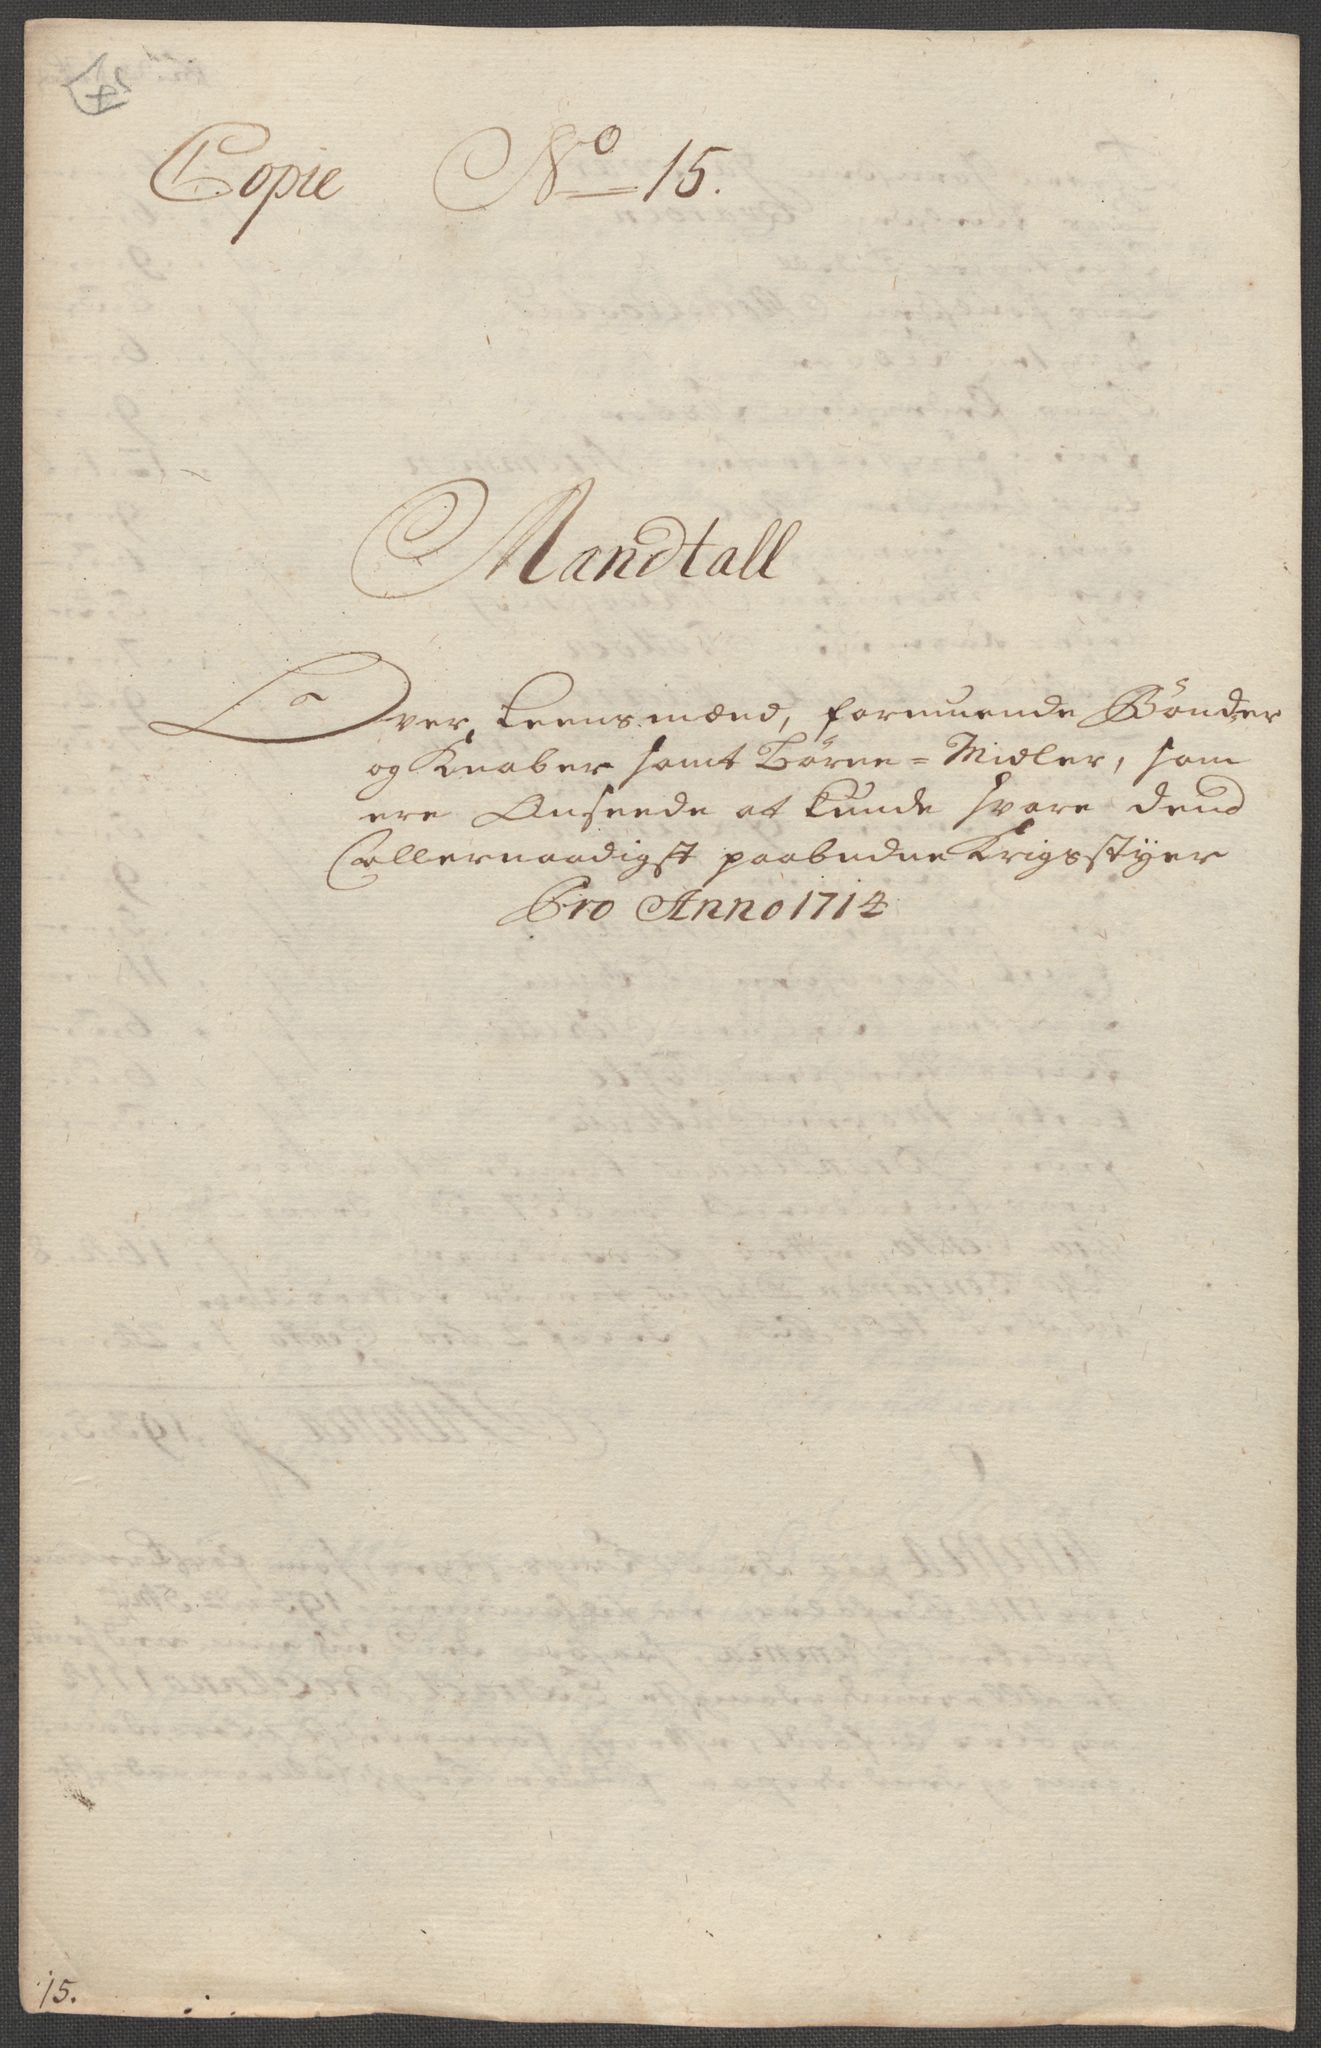 Copie No 15.
Mandtall
Over Leensmænd, formuende Bönder
og Knaber samt Börne = Midler, som
ere Anseede at kunde svare dend
allernaadigst paabudne Krigsstÿer
Pro Anno 1714
15.